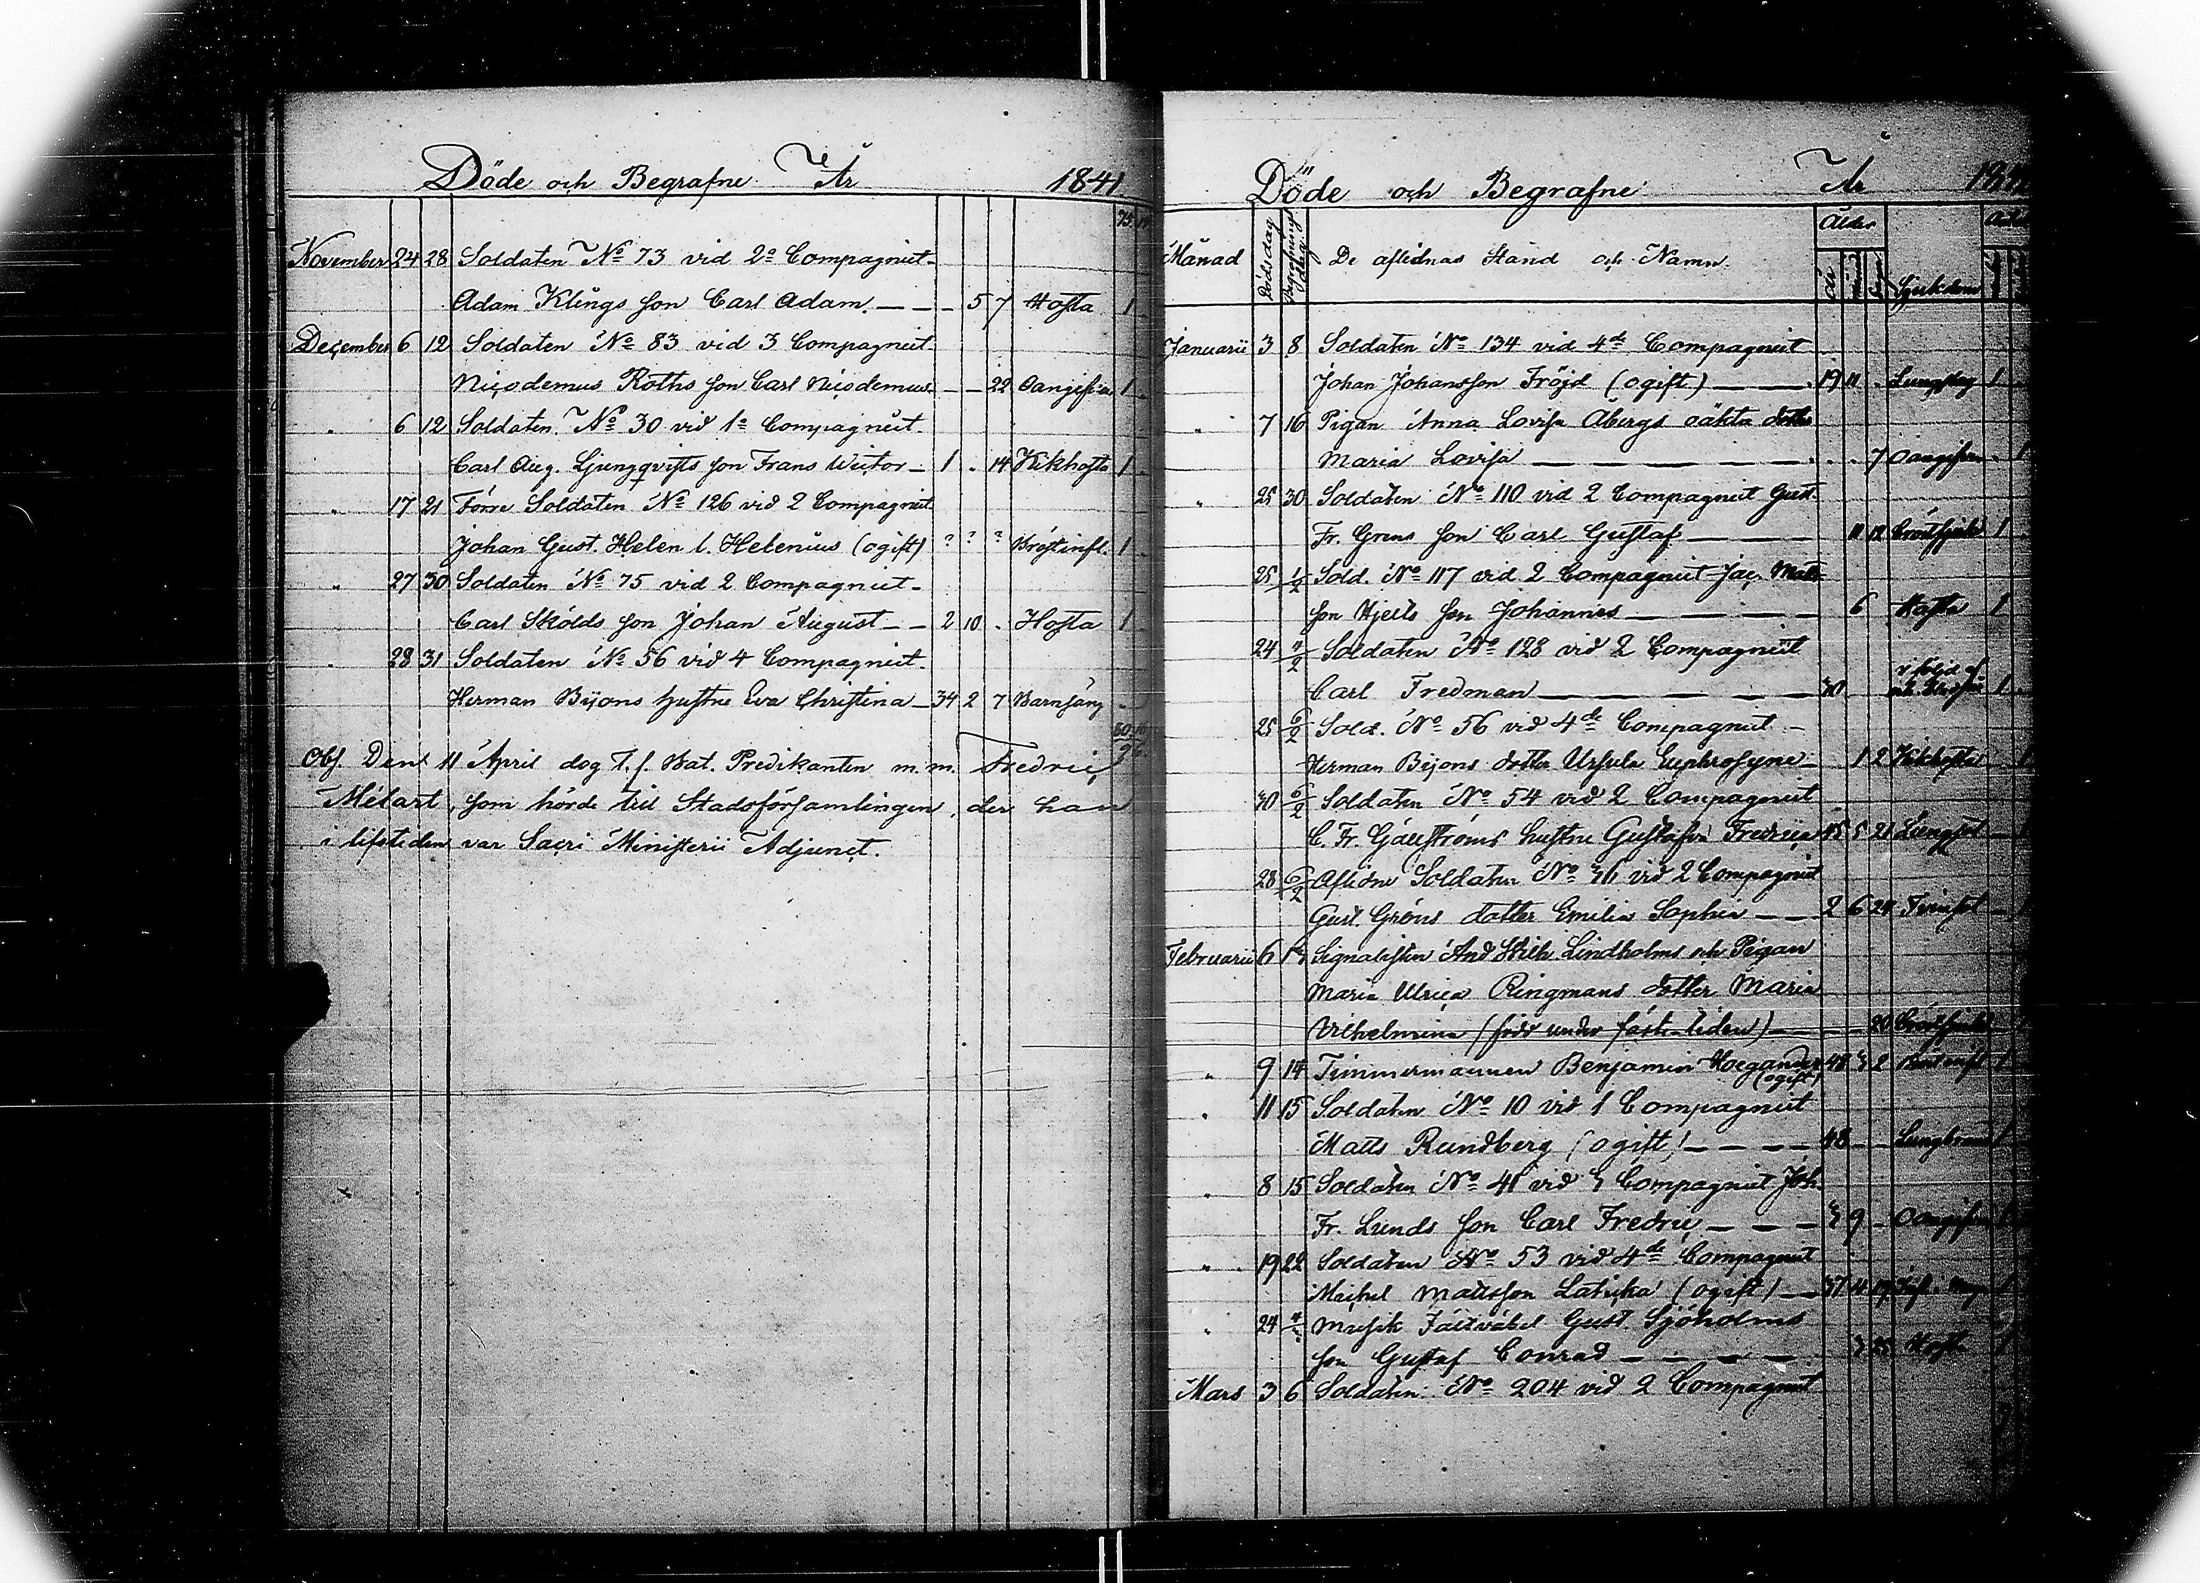 Döde och Begrafne År 1841
75
November 24 28 Soldaten No 73 vid 2a Compagniet
Adam Klings son Carl Adam. — — 5 7 Hosta 1
December 6 12 Soldaten No 83 vid 3 Compagniet
Nicodemus Roths son Carl Nicodemus — — 22 Oangifna 1
" 6 12 Soldaten No 30 vid 1a Compagniet
Carl Aug. Ljungqvists son Frans Victor — 1 . 14 Kikhosta 1
" 17 21 Förre Soldaten No 126 vid 2 Compagniet
Johan Gust. Helen l. Helenius (ogift) ? ? ? Bröstinfl. 1
" 27 30 Soldaten No 75 vid 2 Compagniet
Carl Skölds son Johan August — — 2 10 . Hosta 1
" 28 31 Soldaten No 56 vid 4 Compagniet
Herman Bijons hustru Eva Christina — 34 2 7 Barnsäng
Obs. Den 11 April dog t. f. Bat. Predikanten m. m. Fredric
Melart, som hörde till Stadsförsamlingen, der han
i lifstiden var Sacri Ministerii Adjunct.
Döde och Begrafne År
Månad Dödsdag Begrafningsdag De aflidnas Stånd och Namn. Ålder år Sjukdom
Januarii 3 8 Soldaten No 134 vid 4de Compagniet
Johan Johansson Fröjd (ogift) — — 19 11 . Lungsot 1
" 7 16 Pigan Anna Lovisa Åbergs oäkta dotter
Maria Lovisa — — — — 7 Oangifven 1
" 25 30 Soldaten No 110 vid 2 Compagniet Gust.
Fr. Grens son Carl Gustaf — — 11 12 Bröstsjuka 1
25 1/2 Sold. No 117 vid 2 Compagniet Jac. Mats-
son Hjelts son Johannes — — — 6 Hosta 1
24 4/2 Soldaten No 128 vid 2 Compagniet
Carl Fredman — — — — 30 i följd af 1
25 6/2 Sold. No 56 vid 4de Compagniet —
Herman Bijons dotter Ursula Euphrosyne — 1 2 Kikhosta 1
30 6/2 Soldaten No 54 vid 2 Compagniet
C. Fr. Gäuströms hustru Gustafva Fredrica 45 5 21 Lungsot — 1
28 6/2 Aflidne Soldaten No 36 vid 2 Compagniet
Gust. Gröns dotter Emilia Sophia — — 2 6 24 Tvinsot — 1
Februarii 6 13 Signalisten And Wilh. Lindholms och Pigan
Maria Ulrica Ringmans dotter Maria
Vilhelmina (född under fäste-tiden) — — — 20 Bröstsjuka
" 9 14 Timmermannen Benjamin Hoegander 48 3 2 Bröstinfl 1
(ogift)
" 11 15 Soldaten No 10 vid 1 Compagniet
Matts Rundberg (ogift) — — — 48 — — Lungbrand 1
" 8 15 Soldaten No 41 vid 3 Compagniet Joh.
Fr. Lunds son Carl Fredric — — — 3 9 — Oangifven 1
" 19 22 Soldaten No 53 vid 4de Compagniet
Michel Mattsson Laticka (ogift) — 37 4 1
" 24 Musik Fältväbel Gust. Sjöholms
son Gustaf Conrad — — — — 3 25 Hosta 1
Mars 3 6 Soldaten No 204 vid 2 Compagniet